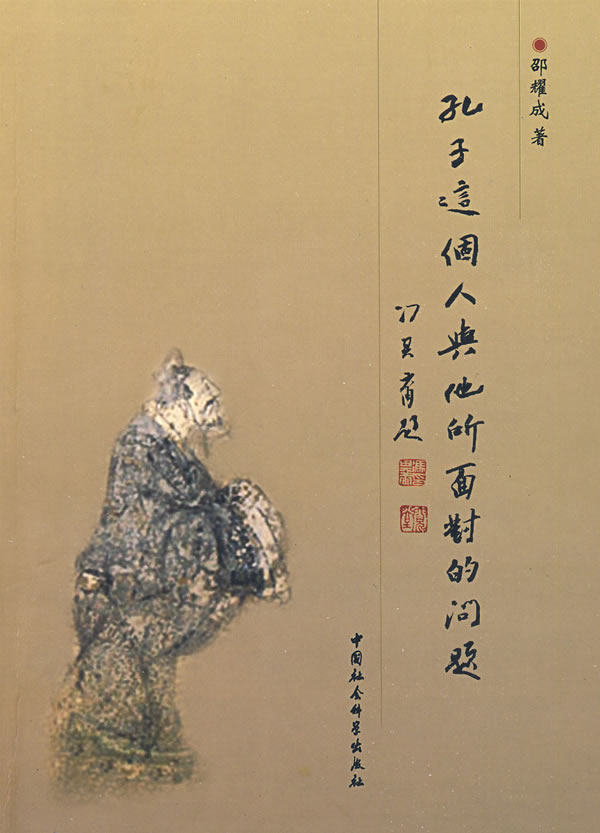 邵耀成 著
孔子這個人與他所面對的問題
馮其庸題
中国社会科学出版社